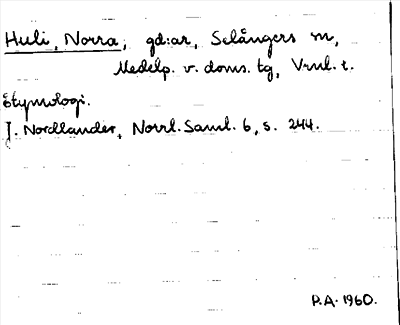 Huli, Norra, gd:ar, Selångers sn,
Medelp. v. doms. tg, Vnl. l.
Etymologi.
J. Nordlander, Norrl. Saml. 6, s. 244.
P.A. 1960.